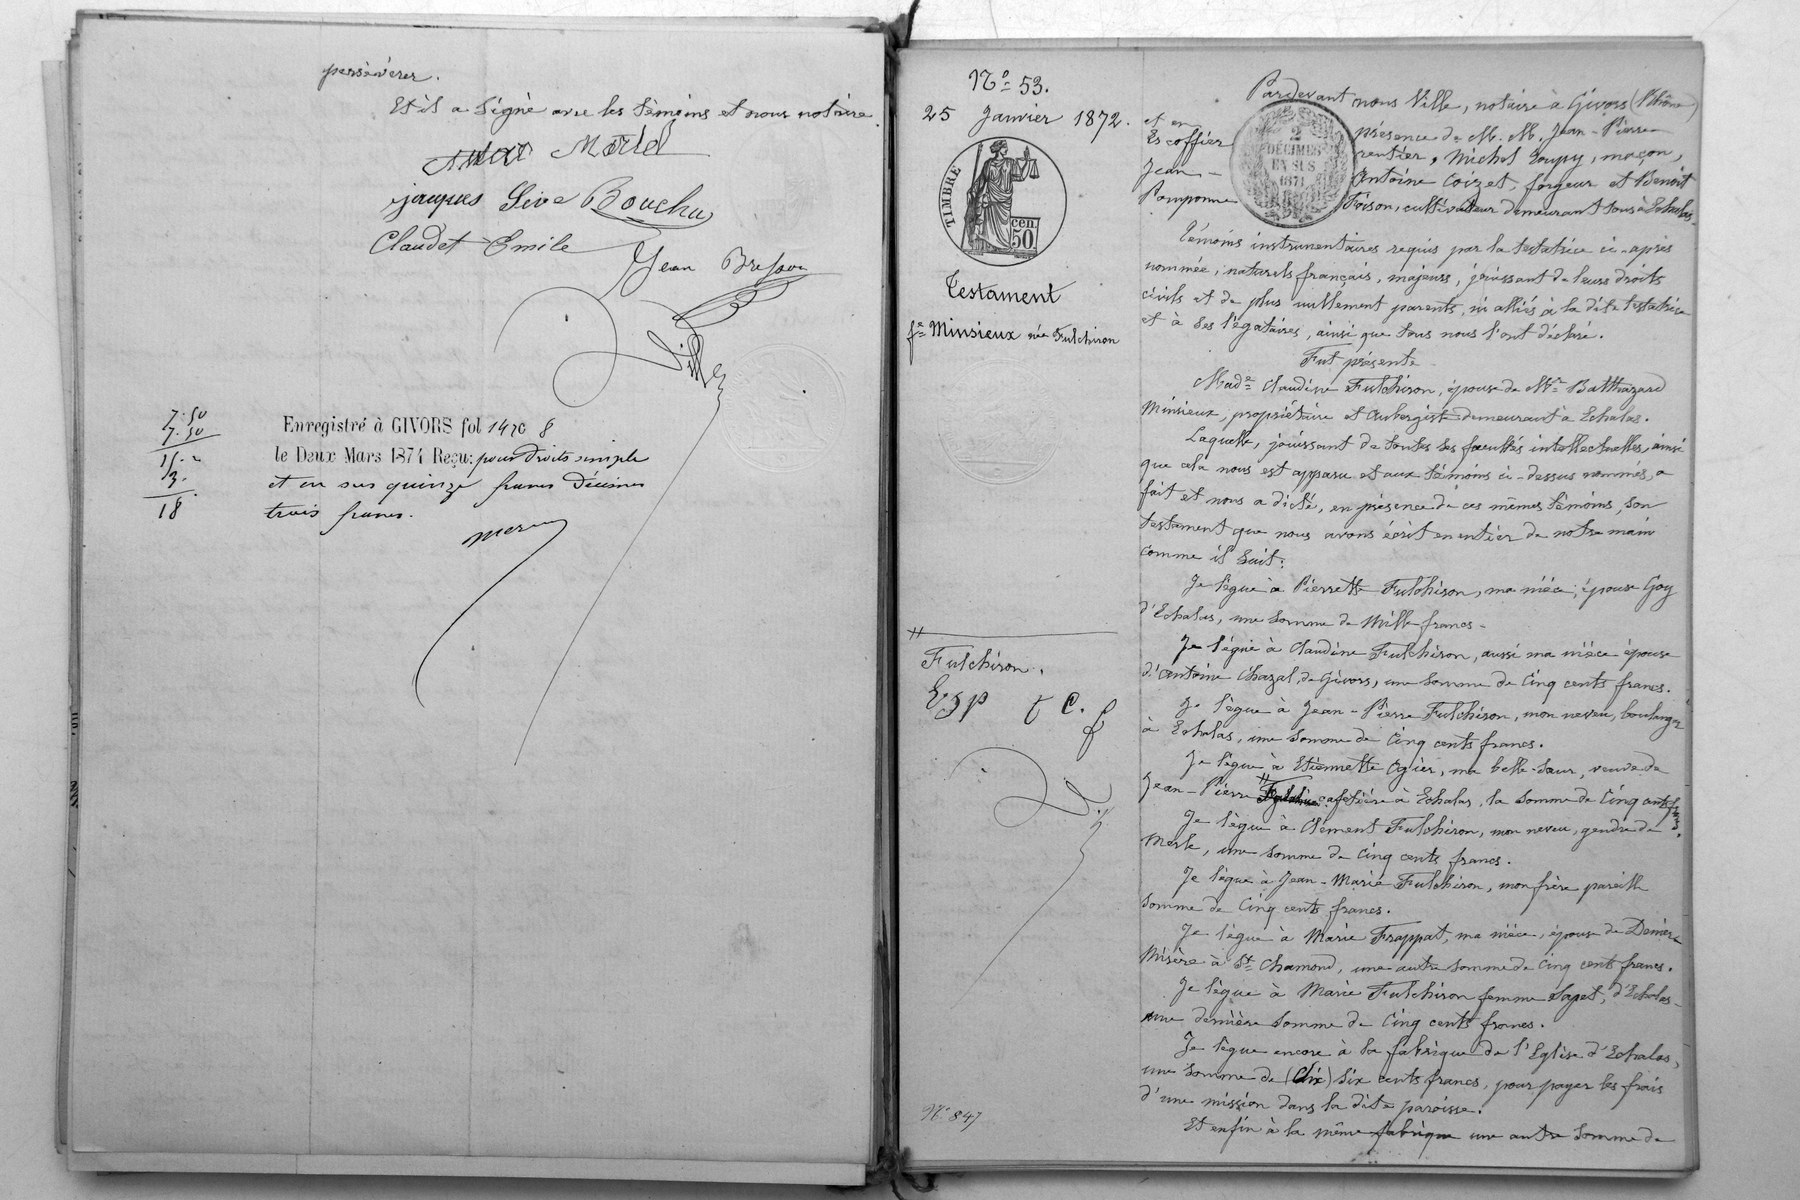 persévérer.
Et il a signé avec les témoins et nous notaire.
Morlel
jacques Sive Bouchu
Claudet Emile
Jean Bresson
Ville
7.50
7.50
15.
3.
18
Enregistré à GIVORS fol 147 c 8
le Deux Mars 1871 Reçu: pour droits simple
et en sus quinze francs Décimes
trois francs.
No 53.
25 Janvier 1872.
TIMBRE
cen.
50.
Testament
fe Minsieux née Fulchiron
Fulchiron.
E J P t C. f
No 847
2
DÉCIMES
EN SUS
1871
Pardevant nous Ville, notaire à Givors (Rhône)
et en présence de M. M. Jean-Pierre
Escoffier rentier, Michel Loupy, maçon,
Jean- Antoine Coizet, forgeur et Benoit
Pomponne Foison, cultivateur demeurant tous à Echalas.
Témoins instrumentaires requis par la testatrice ci-après
nommée, naturels français, majeurs, jouissant de leurs droits
civils et de plus nullement parents, ni alliés à la dite testatrice
et à ses légataires, ainsi que tous nous l'ont déclaré.
Fut présente
Made Claudine Fulchiron, épouse de Mr Balthazard
Minsieux, propriétaire et aubergiste demeurant à Echalas.
Laquelle, jouissant de toutes ses facultés intellectuelles, ainsi
que cela nous est apparu et aux témoins ci-dessus nommés, a
fait et nous a dicté, en présence de ces mêmes témoins, son
testament que nous avons écrit en entier de notre main
comme il suit:
Je lègue à Pierrette Fulchiron, ma nièce, épouse Goy
d'Echalas, une somme de Mille francs-
Je lègue à Claudine Fulchiron, aussi ma nièce épouse
d'Antoine Chazal, de Givors, une somme de Cinq cents francs.
Je lègue à Jean-Pierre Fulchiron, mon neveu, boulanger
à Echalas, une somme de Cinq cents francs.
Je lègue à Etiennette Ogier, ma belle-sœur, veuve de
Jean-Pierre cafetière à Echalas, la somme de Cinq cents francs.
Je lègue à Clément Fulchiron, mon neveu, gendre de
Merle, une somme de Cinq cents francs.
Je lègue à Jean-Marie Fulchiron, mon frère pareille
somme de Cinq cents francs.
Je lègue à Marie Frappat, ma nièce, épouse de Démère
Misère à St Chamond, une autre somme de Cinq cents francs.
Je lègue à Marie Fulchiron femme Sapet, d'Echalas-
une dernière somme de Cinq cents francs.
Je lègue encore à la fabrique de l'Eglise d'Echalas,
une somme de (dix) Six cents francs, pour payer les frais
d'une mission dans la dite paroisse.
Et enfin à la même fabrique une autre somme de